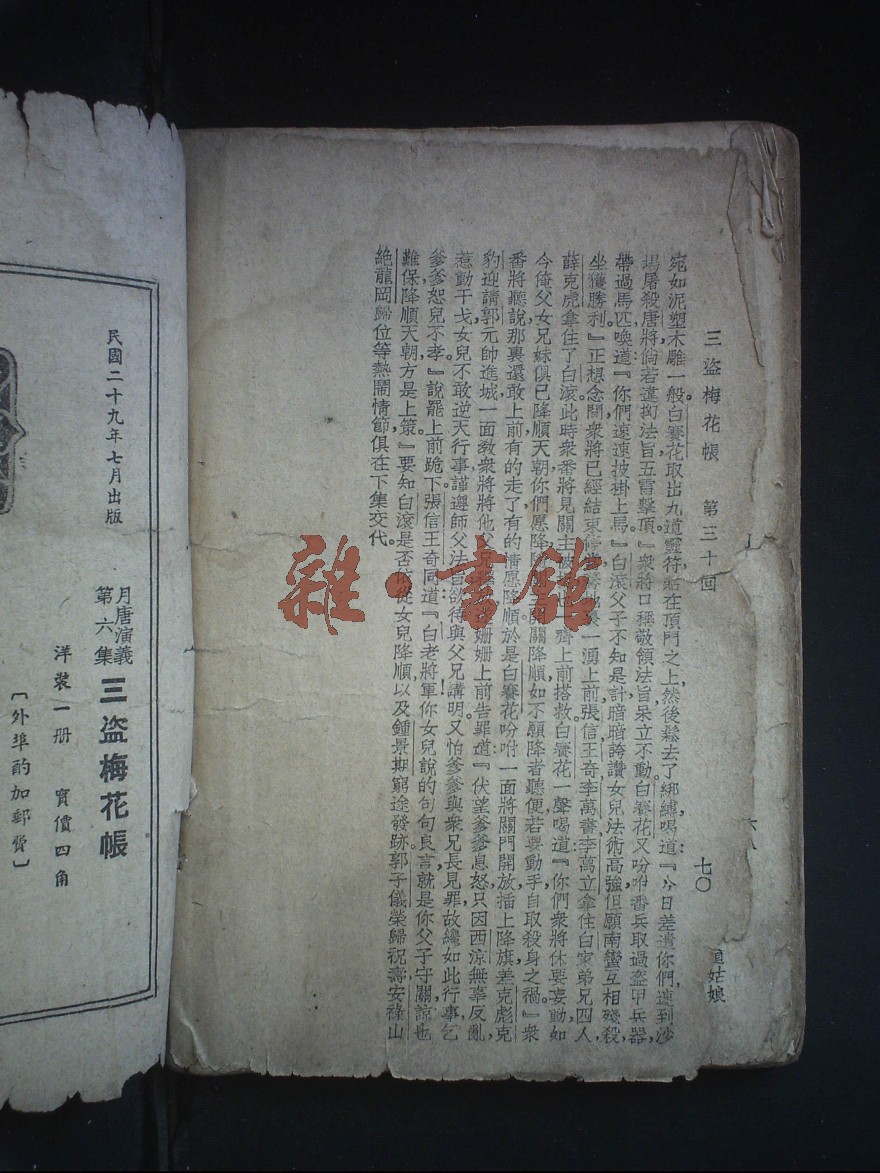 三盗梅花帳　第三十回　七〇
宛如泥塑木雕一般白賽花取出九道靈符貼在頂門之上然後鬆去了綁縛喝道『今日差遣你們速到沙
場屠殺唐將倘若違拗法旨五雷擊頂』衆將口稱敬領法旨呆立不動白賽花又吩咐番兵取過盔甲兵器
帶過馬匹喚道『你們速速披掛上馬』白滾父子不知是計暗暗誇讚女兒法術高強但願南蠻互相殘殺
坐獲勝利』正想念間衆將已經結束停當一湧上前張信王奇李萬李萬立拿住白家弟兄四人
薛克虎拿住了白滾此時衆番將見關主被齊上前搭救白賽花一聲喝道『你們衆將休要妄動如
今俺父女兄妹俱已降順天朝你們愿降開關降順如不願降者聽便若要動手自取殺身之禍』衆
番將聽說那裏還敢上前有的走了有的情愿降順於是白賽花吩咐一面將關門開放插上降旗差克彪克
豹迎請郭元帥進城一面教衆將將他父兄姍姍上前告罪道『伏望爹爹息怒只因西涼無辜反亂
惹動干戈女兒不敢逆天行事謹遵師父法旨欲待與父兄講明又怕爹爹與衆兄長見罪故纔如此行事乞
爹爹恕兒不孝』說罷上前跪下張信王奇同道『白老將軍你女兒說的句句良言就是你父子守關諒也
難保降順天朝方是上策』要知白滾是否依從女兒降順以及鍾景期窮途發跡郭子儀榮歸祝壽安祿山
絶龍岡歸位等熱鬧情節俱在下集交代。
姑娘
民國二十九年七月出版
月唐演義
第六集
三盗梅花帳
洋裝一册　實價四角
〔外埠酌加郵費〕
雜·書館